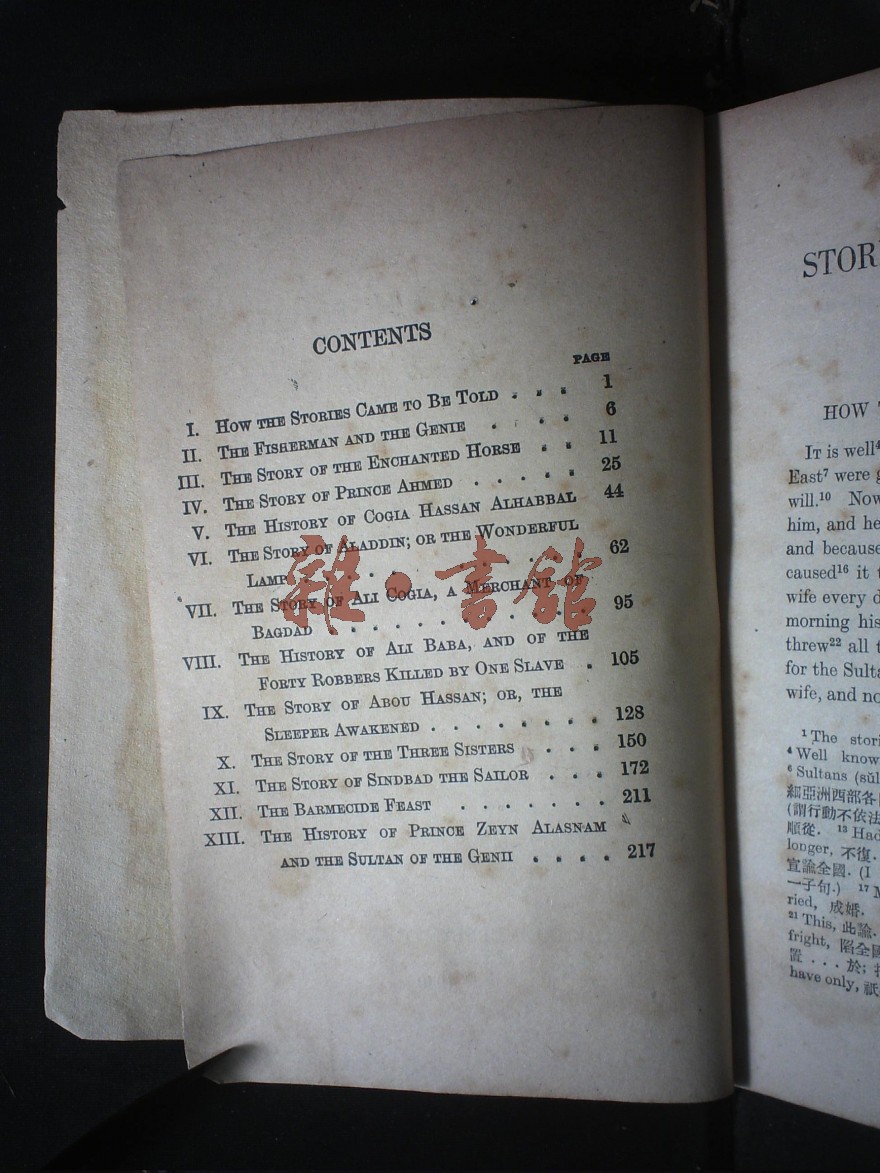 CONTENTS
PAGE
I. HOW THE STORIES CAME TO BE TOLD . . . 1
II. THE FISHERMAN AND THE GENIE . . . . 6
III. THE STORY OF THE ENCHANTED HORSE . . 11
IV. THE STORY OF PRINCE AHMED . . . . . 25
V. THE HISTORY OF COGIA HASSAN ALHABBAL 44
VI. THE STORY OF ALADDIN; OR THE WONDERFUL
LAMP . . . . . . . . . 62
VII. THE STORY OF ALI COGIA, A MERCHANT OF
BAGDAD . . . . . . . . . . 95
VIII. THE HISTORY OF ALI BABA, AND OF THE
FORTY ROBBERS KILLED BY ONE SLAVE . 105
IX. THE STORY OF ABOU HASSAN; OR, THE
SLEEPER AWAKENED . . . . . . . . 128
X. THE STORY OF THE THREE SISTERS . . . 150
XI. THE STORY OF SINDBAD THE SAILOR . . . 172
XII. THE BARMECIDE FEAST . . . . . . . 211
XIII. THE HISTORY OF PRINCE ZEYN ALASNAM
AND THE SULTAN OF THE GENII . . . . 217
雜·書館
STOR
HOW
IT IS well4
East7 were
will.10 Now
him, and he
and because
caused16 it
wife every
morning his
threw22 all
for the Sulta
wife, and no
1 The stori
4 Well know
6 Sultans (sŭl
細亞洲西部各
(謂行動不依法
順從. 13 Had
longer, 不復.
宣諭全國. (I
一子句.) 17
ried, 成婚.
21 This, 此諭.
fright, 陷全國
置 . . . 於;
have only, 祇